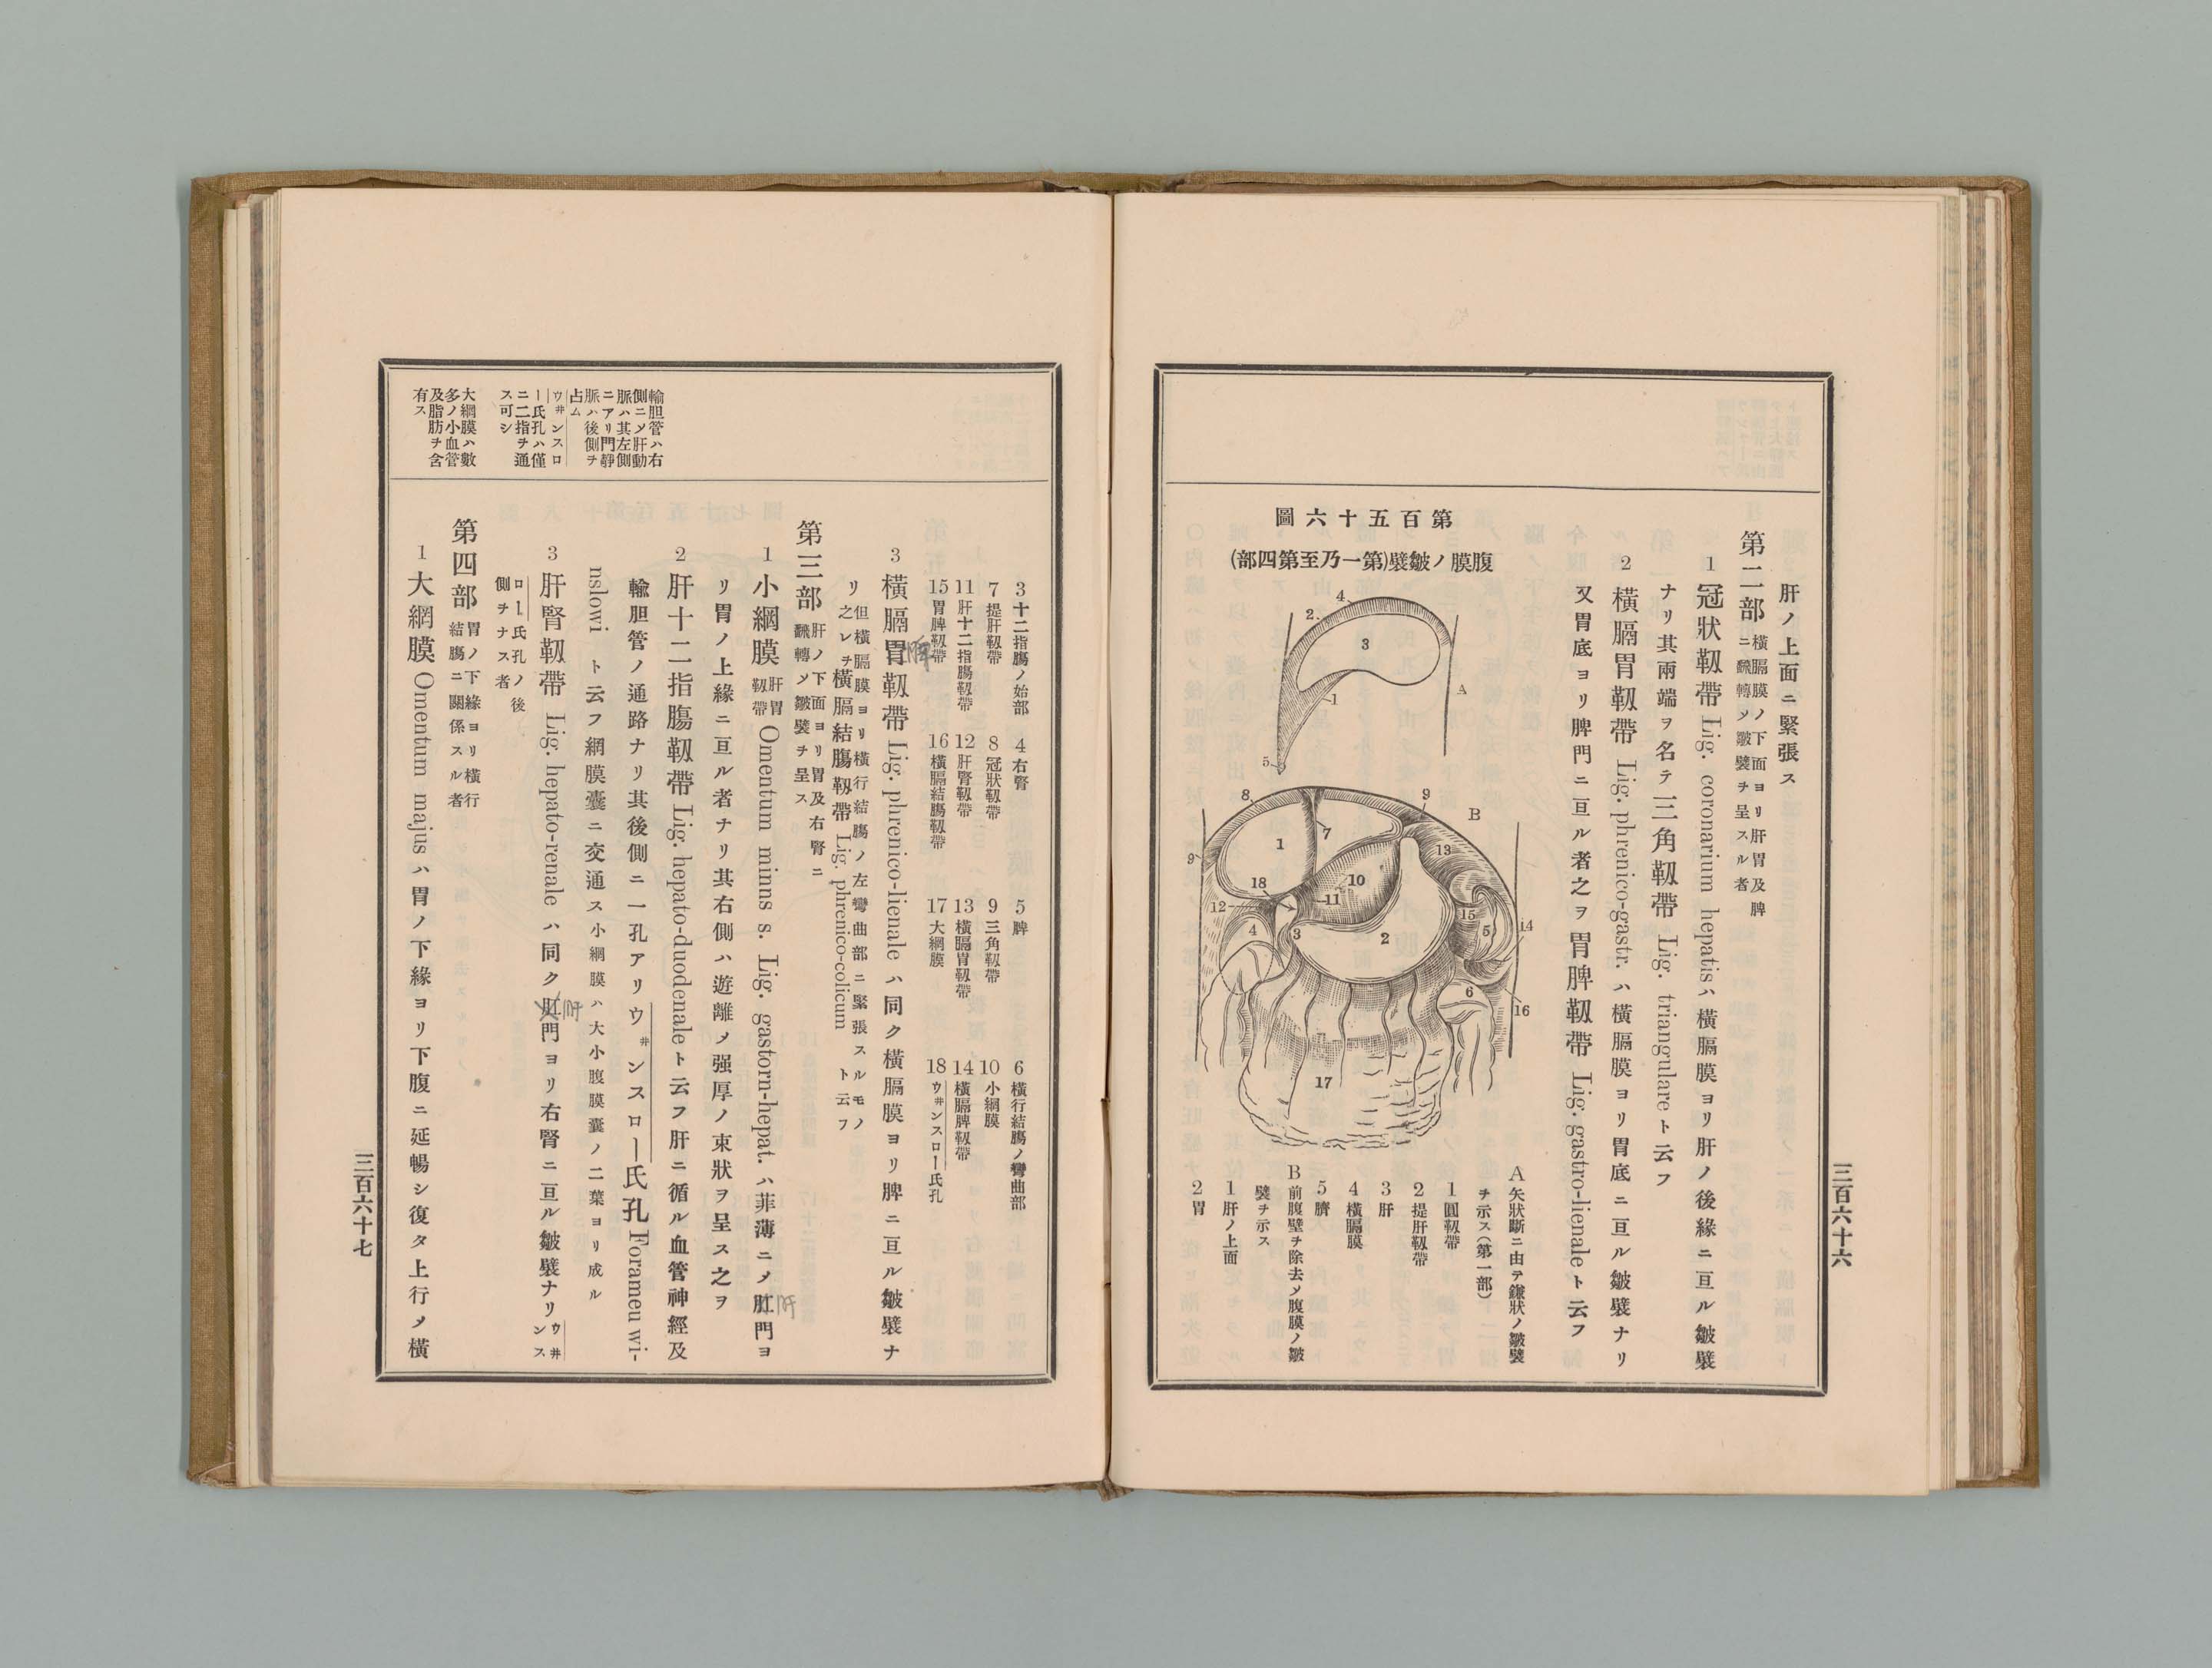 肝ノ上面ニ緊張ス
第二部 横膈膜ノ下面ヨリ肝胃及脾
ニ飜轉シ皺襞ヲ呈スル者
1 冠狀靱帶 Lig. coronarium hepatis ハ横膈膜ヨリ肝ノ後緣ニ亘ル皺襞
ナリ其兩端ヲ名テ三角靱帶 Lig. triangulare ト云フ
2 横膈胃靱帶 Lig. phrenico-gastr. ハ横膈膜ヨリ胃底ニ亘ル皺襞ナリ
又胃底ヨリ脾門ニ亘ル者之ヲ胃脾靱帶 Lig. gastro-lienale ト云フ
第百五十六圖
腹膜ノ皺襞(第一乃至第四部)
4
2
3
1
A
5
8
9
B
7
1
13
9
10
18
11
12
15
14
4
3
2
5
6
16
17
A 矢狀斷ニ由テ鎌狀ノ皺襞
ヲ示ス(第一部)
1 圓靱帶
2 提肝靱帶
3 肝
4 横膈膜
5 臍
B 前腹壁ヲ除去メ腹膜ノ皺
襞ヲ示ス
1 肝ノ上面
2 胃
三百六十六
3 十二指膓ノ始部 4 右腎 5 脾 6 横行結膓ノ彎曲部
7 提肝靱帶 8 冠狀靱帶 9 三角靱帶 10 小網膜
11 肝十二指膓靱帶 12 肝腎靱帶 13 横膈胃靱帶 14 横膈脾靱帶
15 胃脾靱帶 16 横膈結膓靱帶 17 大網膜 18 ウ井ンスロー氏孔
3 横膈胃靱帶 Lig. phrenico-lienale ハ同ク横膈膜ヨリ脾ニ亘ル皺襞ナ
脾
リ 但横膈膜ヨリ横行結膓ノ左彎曲部ニ緊張スルモノ
之レヲ横膈結膓靱帶 Lig. phrenico-colicum ト云フ
第三部 肝ノ下面ヨリ胃及右腎ニ
飜轉シ皺襞ヲ呈ス
1 小網膜 肝胃靱帶 Omentum minns s. Lig. gastorn-hepat. ハ菲薄ニメ肛門ヨ
肝
リ胃ノ上緣ニ亘ル者ナリ其右側ハ遊離メ强厚ノ束狀ヲ呈ス之ヲ
2 肝十二指膓靱帶 Lig. hepato-duodenale ト云フ肝ニ循ル血管神經及
輸胆管ノ通路ナリ其後側ニ一孔アリウ井ンスロー氏孔 Forameu wi-
nslowi ト云フ網膜囊ニ交通ス小網膜ハ大小腹膜囊ノ二葉ヨリ成ル
3 肝腎靱帶 Lig. hepato-renale ハ同ク肛門ヨリ右腎ニ亘ル皺襞ナリ ウ井ンス
肝
ロー氏孔ノ後
側ヲナス者
第四部 胃ノ下緣ヨリ横行
結膓ニ關係スル者
1 大網膜 Omentum majus ハ胃ノ下緣ヨリ下腹ニ延暢シ復タ上行メ横
輸胆管ハ右
側ニメ肝動
脈ハ其左側
ニアリ門靜
脈ハ後側ヲ
占ム
ウ井ンスロ
ー氏孔ハ僅
ニ二指ヲ通
ス可シ
大網膜ハ數
多ノ小血管
及脂肪ヲ含
有ス
三百六十七